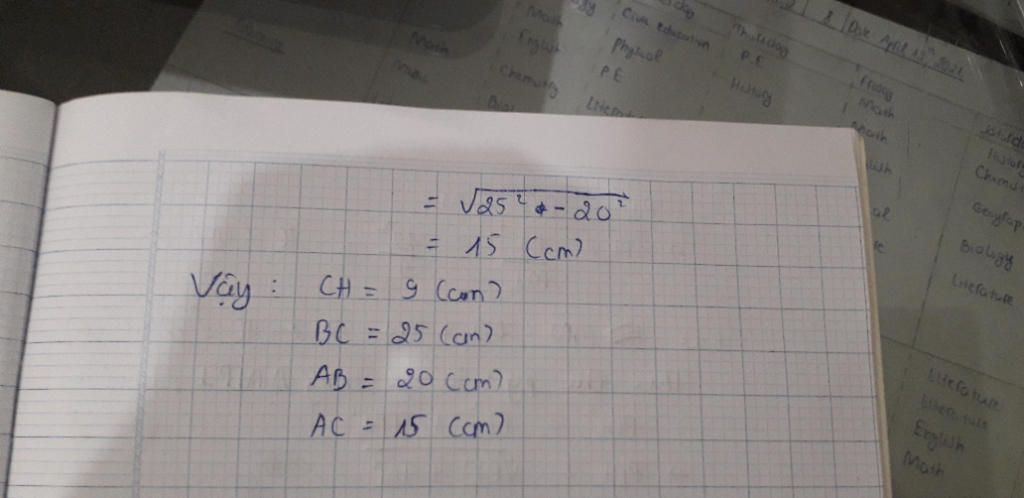 = √25² - 20²
= 15 (cm)
Vậy : CH = 9 (cm)
BC = 25 (cm)
AB = 20 (cm)
AC = 15 (cm)
Math
English
Chemistry
Civic education
Physical
P.E
Literature
Thursday
P.E
History
Friday
Math
Math
Date April 12, 2021
History
Biology
Literature
Literature
Literature
English
Math